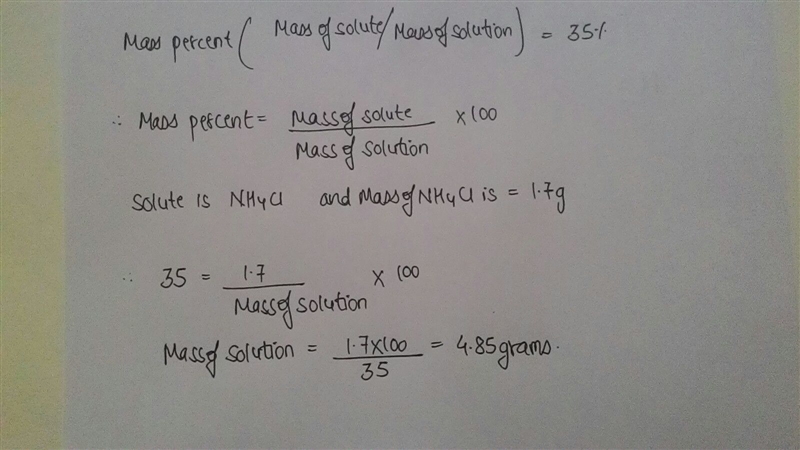 Mass percent ( Mass of solute / Mass of solution ) = 35%
∴ Mass percent = Mass of solute / Mass of solution × 100
Solute is NH4Cl and Mass of NH4Cl is = 1.7g
∴ 35 = 1.7 / Mass of solution × 100
Mass of solution = 1.7×100 / 35 = 4.85 grams.